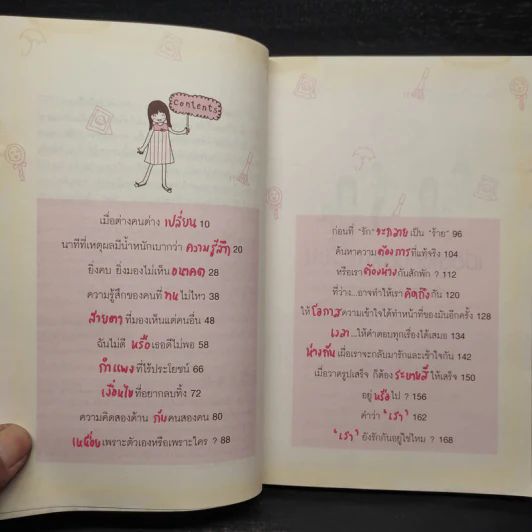 Contents
เมื่อต่างคนต่าง เปลี่ยน 10
นาทีที่เหตุผลมีน้ำหนักเบากว่า ความรู้สึก 20
ยิ่งคบ ยิ่งมองไม่เห็น อนาคต 28
ความรู้สึกของคนที่ ทน ไม่ไหว 38
สายตา ที่มองเห็นแต่คนอื่น 48
ฉันไม่ดี หรือ เธอดีไม่พอ 58
กำแพง ที่ไร้ประโยชน์ 66
เงื่อนไข ที่อยากลบทิ้ง 72
ความคิดสองด้าน กับ คนสองคน 80
เหนื่อย เพราะตัวเองหรือเพราะใคร ? 88
ก่อนที่ "รัก" จะกลาย เป็น "ร้าย" 96
ค้นหาความ ต้องการ ที่แท้จริง 104
หรือเรา ต้องห่าง กันสักพัก ? 112
ที่ว่าง...อาจทำให้เรา คิดถึง กัน 120
ให้ โอกาส ความเข้าใจได้ทำหน้าที่ของมันอีกครั้ง 128
เวลา ...ให้คำตอบทุกเรื่องได้เสมอ 134
ห่างกัน เมื่อเราจะกลับมารักและเข้าใจกัน 142
เมื่อวาดรูปเสร็จ ก็ต้อง ระบายสี ให้เสร็จ 150
อยู่ หรือ ไป ? 156
คำว่า "เรา" 162
"เรา" ยังรักกันอยู่ใช่ไหม ? 168